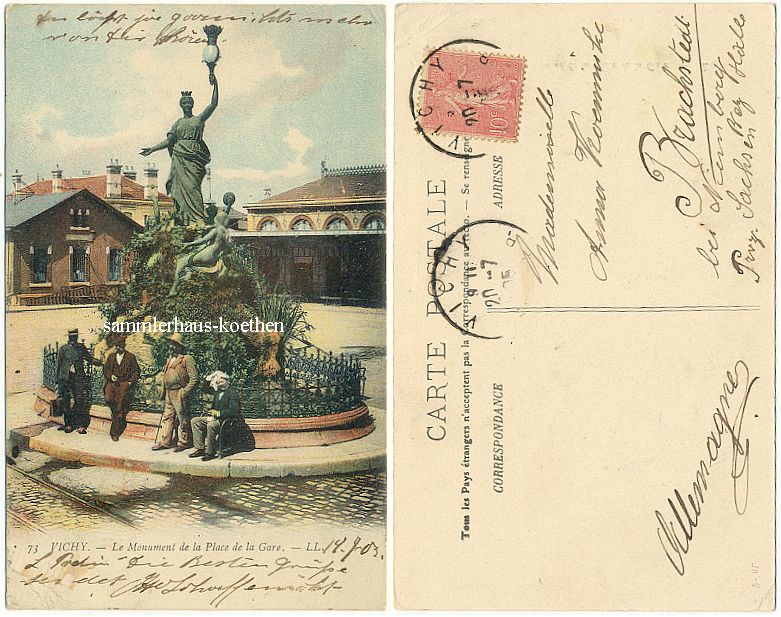 Du läßt ja gar nichts mehr
von dir hören.
sammlerhaus-koethen
73 VICHY. — Le Monument de la Place de la Gare. — LL.
die Besten Grüße
CARTE POSTALE
Tous les Pays étrangers n'acceptent pas la correspondance au recto. — Se renseigner
CORRESPONDANCE
ADRESSE
VICHY
10c
VICHY
Mademoiselle
Anna
Brachstedt
bei Naumburg
Prov. Sachsen Bez Halle
Allemagne